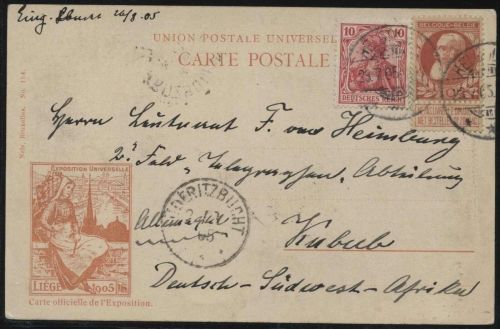 Eing. 26/8.05
UNION POSTALE UNIVERSELLE
CARTE POSTALE
10 10
DEUTSCHES REICH
BELGIQUE-BELGIE
Nels, Bruxelles. No. 194.
Herrn Leutnant F. von Heimburg
2. Feld-Telegraphen-Abteilung
EXPOSITION UNIVERSELLE
LIÉGE 1905
LÜDERITZBUCHT
05
Kubub
Deutsch-Südwest-Afrika
Carte officielle de l'Exposition.